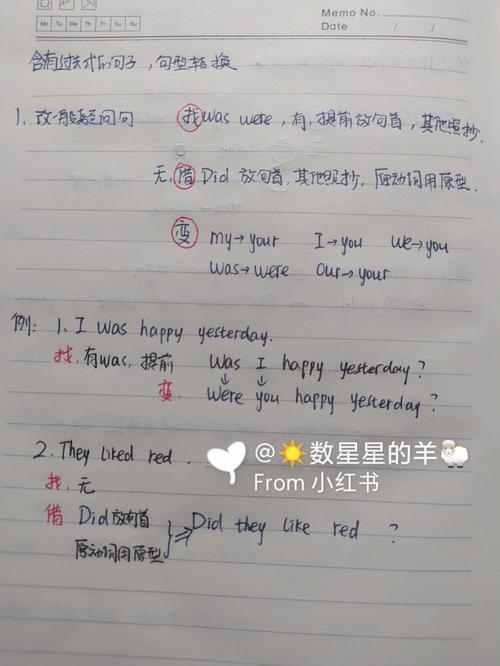 Memo No.
Date / /
Mo Tu We Th Fr Sa Su
含有过去式的句子，句型转换
1. 改一般疑问句 找 was were，有，提前放句首，其他照抄.
无，借 Did 放句首，其他照抄，原动词用原型.
变 my→your I→you we→you
was→were our→your
例：1. I was happy yesterday.
找，有was，提前 Was I happy yesterday？
变 Were you happy yesterday？
2. They liked red.
找，无
借 Did放句首
原动词用原型 ⇒ Did they like red ？
@☀️数星星的羊🐑
From 小红书